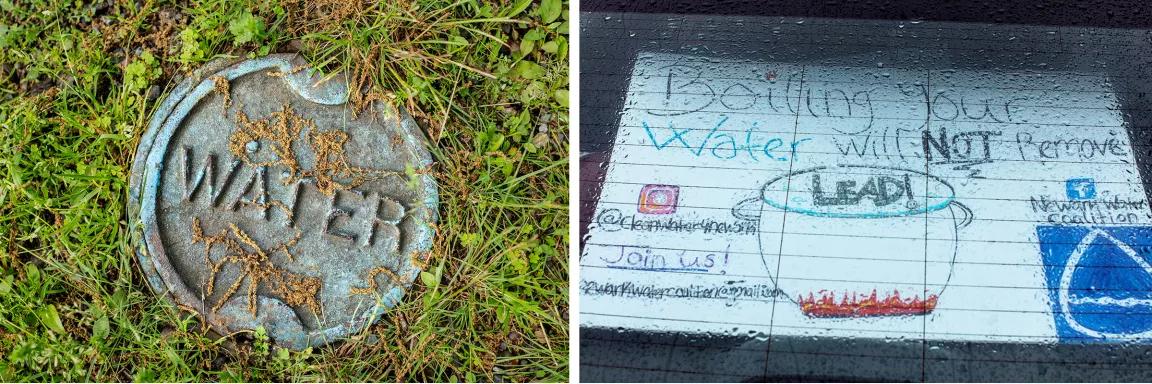 WATER
Boiling your
Water will NOT Remove
LEAD!
@cleanwater4newark
Newark Water
Coalition
Join us!
newarkwatercoalition@gmail.com